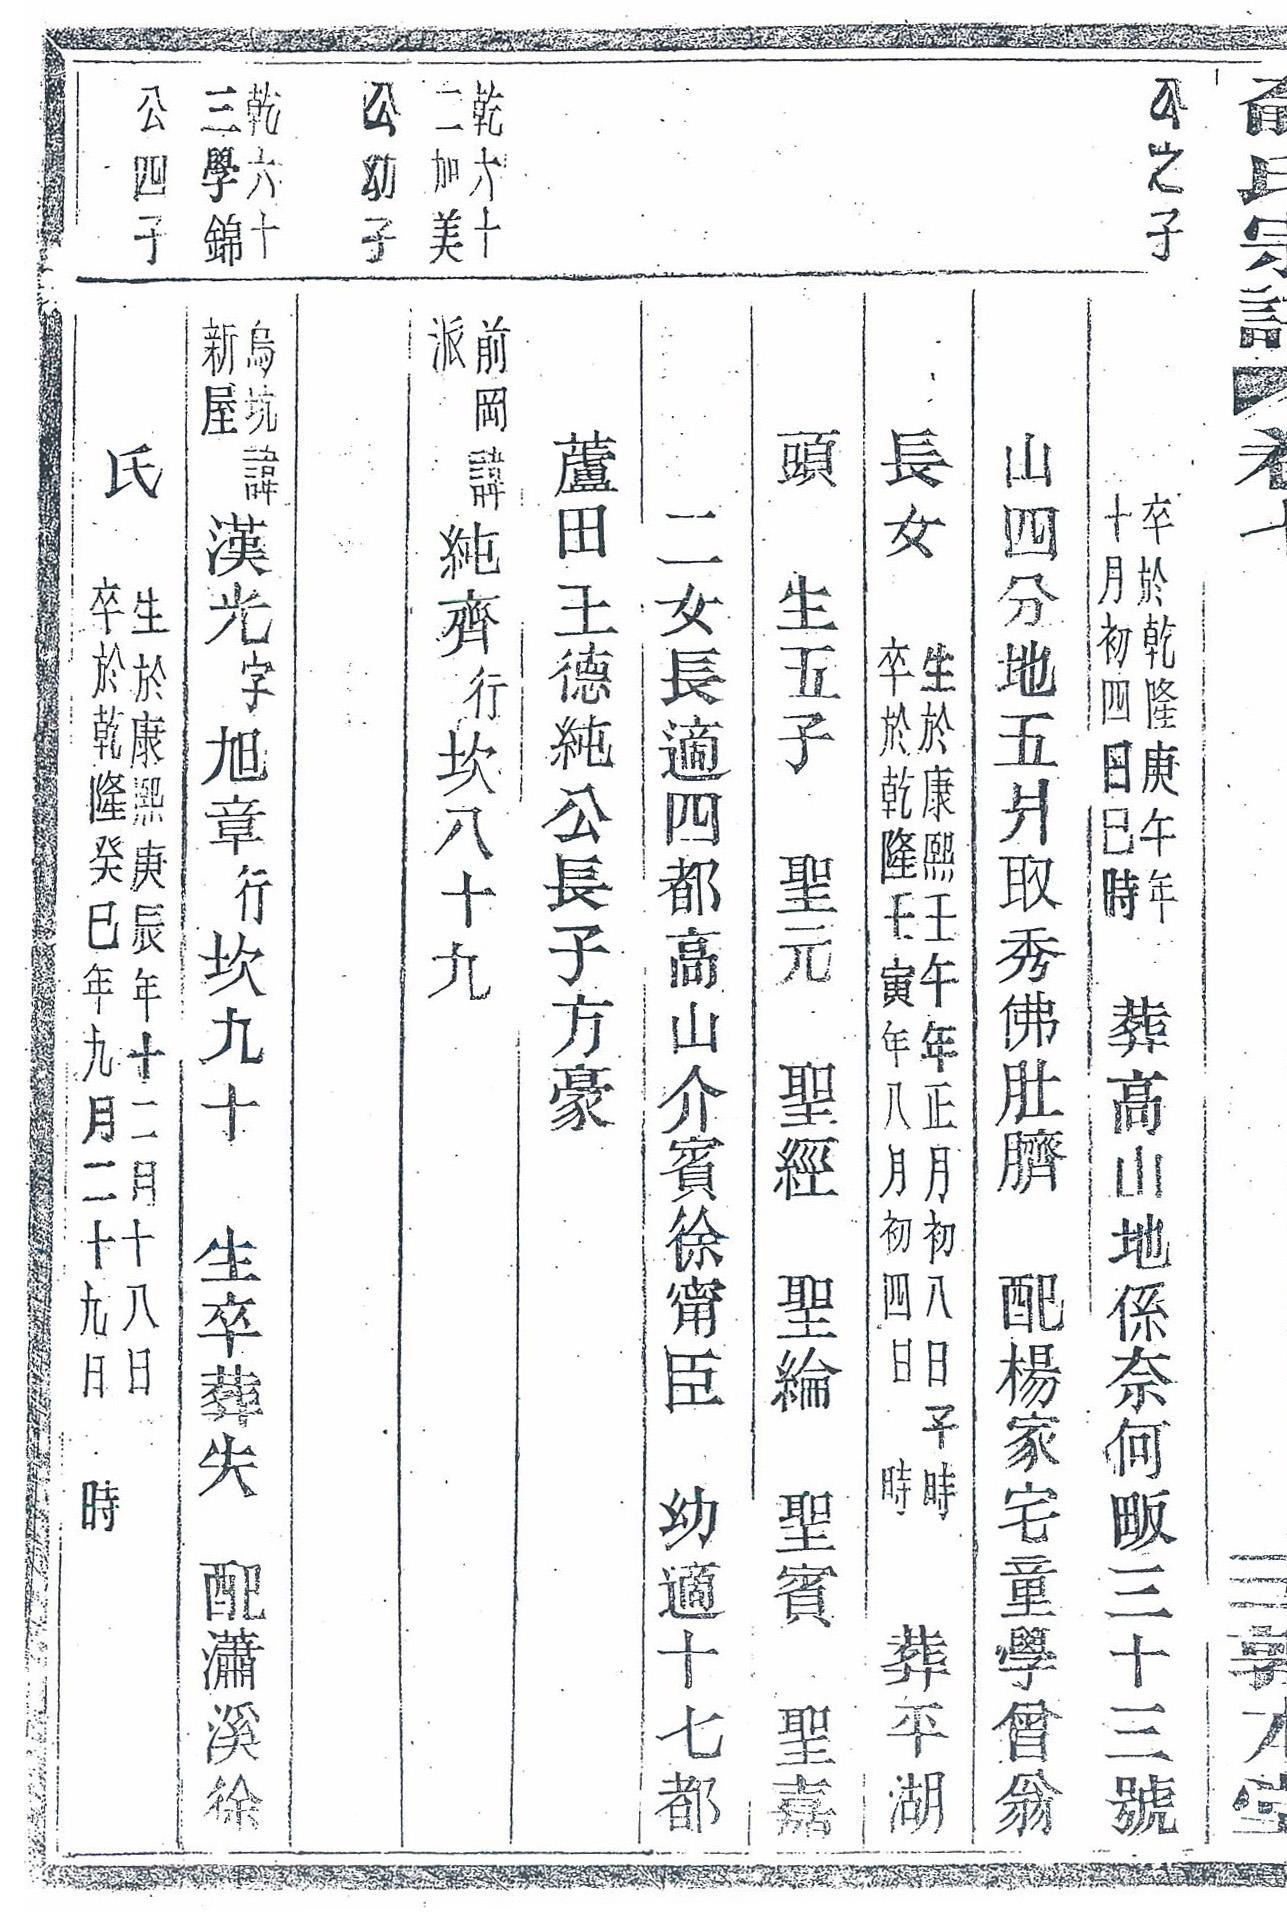 氏宗譜 卷七
敦本堂
公之子
卒於乾隆庚午年
十月初四日巳時
葬高山地係奈何畈三十三號
山四分地五爿取秀佛肚臍 配楊家宅童學曾翁
長女
生於康熙壬午年正月初八日子時
卒於乾隆壬寅年八月初四日 時
葬平湖
頭 生五子 聖元 聖經 聖綸 聖賓 聖嘉
二女長適四都高山介賓徐甯臣 幼適十七都
蘆田王德純公長子方豪
乾六十
二加美
公幼子
前岡
派
諱純齊行坎八十九
乾六十
三學錦
公四子
烏坑
新屋
諱漢光字旭章行坎九十 生卒葬失 配瀟溪徐
氏
生於康熙庚辰年十二月十八日
卒於乾隆癸巳年九月二十九月 時